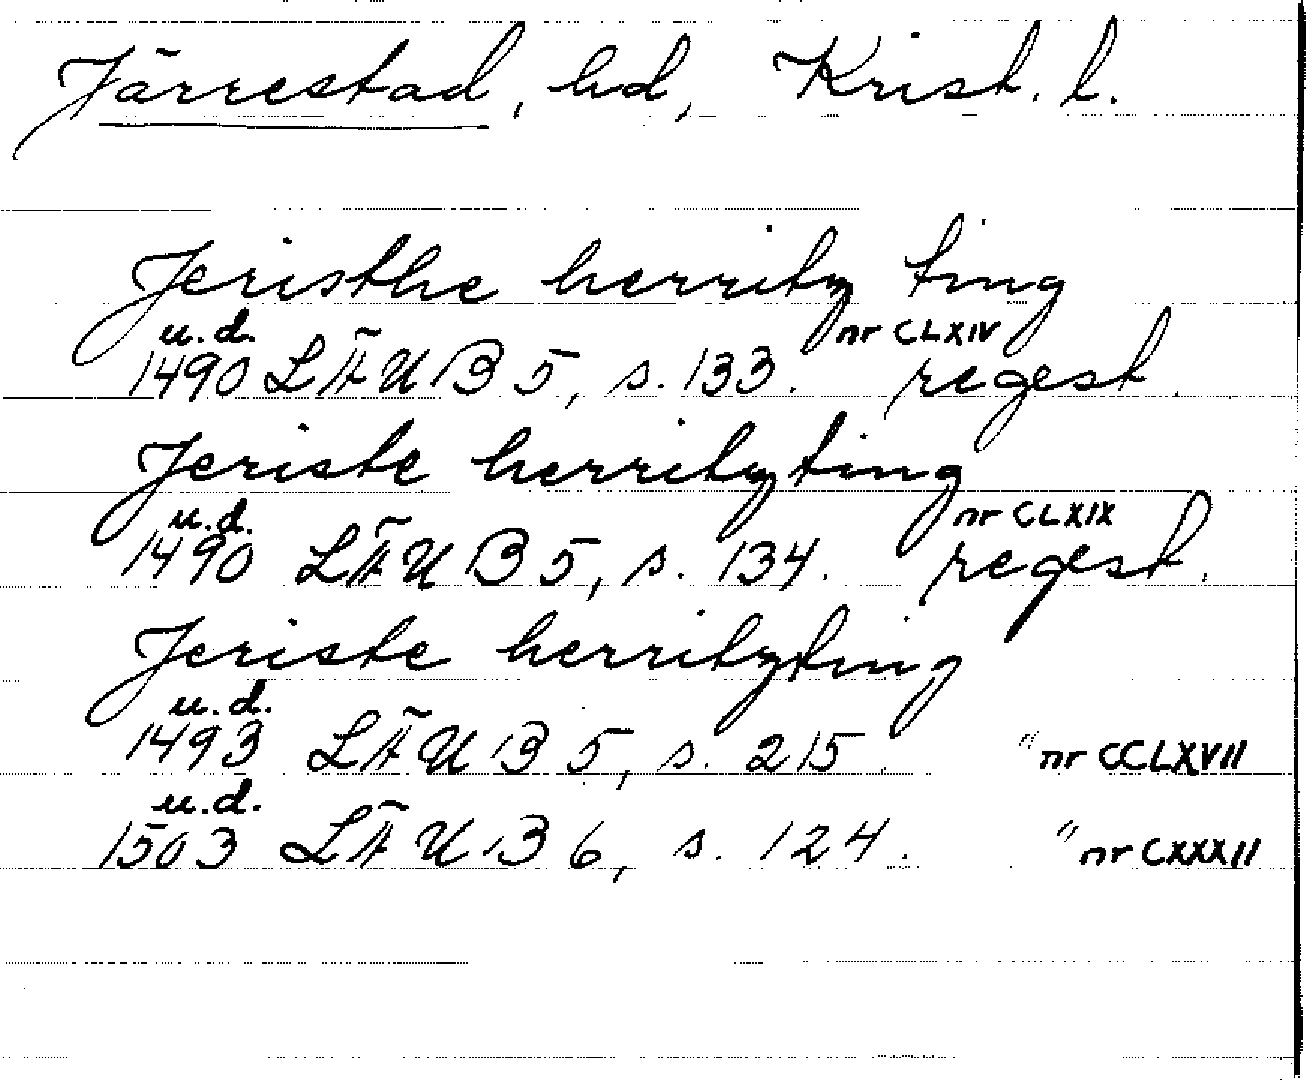 Järrestad, hd, Krist. l.
Jeristhe herritz ting
u.d. nr CLXIV
1490 LÄUB 5, s. 133. regest.
Jeriste herritzting
u.d. nr CLXIX
1490 LÄUB 5, s. 134. regest.
Jeriste herritzting
u.d.
1493 LÄUB 5, s. 215. " nr CCLXVII
u.d.
1503 LÄUB 6, s. 124. " nr CXXXII